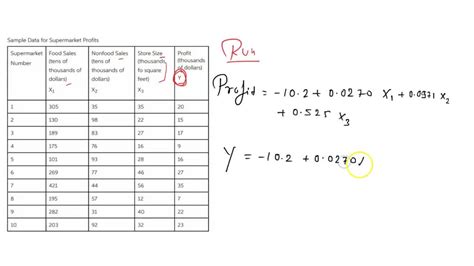 Sample Data for Supermarket Profits
Supermarket Number | Food Sales (tens of thousands of dollars) X₁ | Nonfood Sales (tens of thousands of dollars) X₂ | Store Size (thousands fo square feet) X₃ | Profit (thousands of dollars) Y
1 305 35 35 20
2 130 98 22 15
3 189 83 27 17
4 175 76 16 9
5 101 93 28 16
6 269 77 46 27
7 421 44 56 35
8 195 57 12 7
9 282 31 40 22
10 203 92 32 23
Run
Profit = -10.2 + 0.0270 X₁ + 0.0971 X₂
+ 0.525 X₃
Y = -10.2 + 0.0270